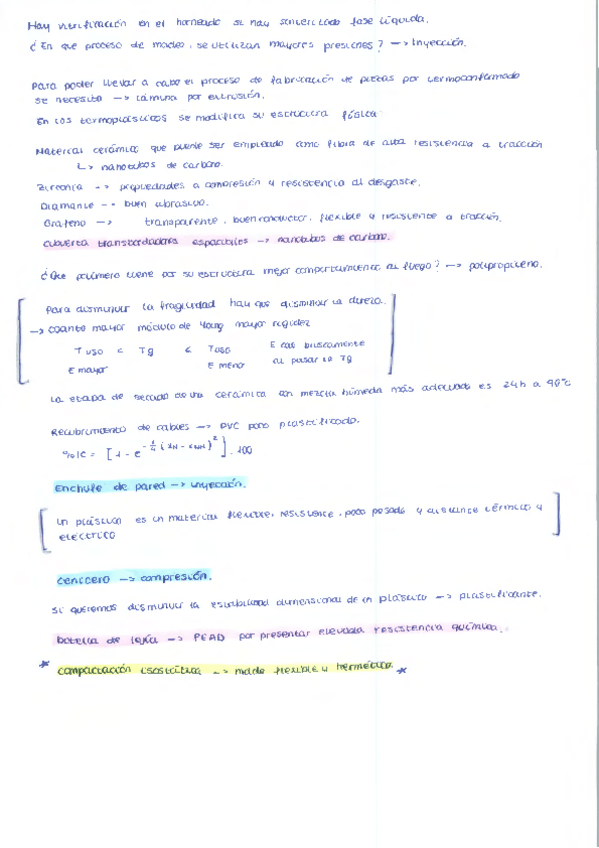 Hay vitrificación en el horneado si hay sinterizado fase líquida.
¿En que proceso de moldeo, se utilizan mayores presiones? → Inyección.
Para poder llevar a cabo el proceso de fabricación de piezas por termoconformado
se necesita → lámina por extrusión.
En los termoplásticos se modifica su estructura física
Material cerámico que puede ser empleado como fibra de alta resistencia a tracción
↳ nanotubos de carbono.
Zirconia → propiedades a compresión y resistencia al desgaste.
Diamante → buen abrasivo.
Grafeno → transparente, buen conductor, flexible y resistente a tracción.
cubierta transbordadores espaciales → nanotubos de carbono.
¿Que polímero tiene por su estructura mejor comportamiento al fuego? → polipropileno.
Para disminuir la fragilidad hay que disminuir la dureza.
→ cuanto mayor módulo de Young mayor rigidez
T uso < Tg < T uso E cae bruscamente
E mayor E menor al pasar la Tg
La etapa de secado de una cerámica con mezcla húmeda más adecuada es 24h a 90°C
Recubrimiento de cables → PVC pero plastificado.
% IC = [1 - e^(-1/4 (XA - XB)²)] · 100
Enchufe de pared → inyección.
Un plástico es un material flexible, resistente, poco pesado y aislante térmico y
eléctrico
Cenicero → compresión.
Si queremos disminuir la estabilidad dimensional de un plástico → plastificante.
botella de lejía → PEAD por presentar elevada resistencia química.
* compactación isostática → molde flexible y hermético. *